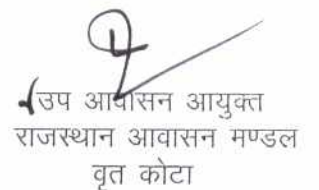 उप आवासन आयुक्त
राजस्थान आवासन मण्डल
वृत कोटा